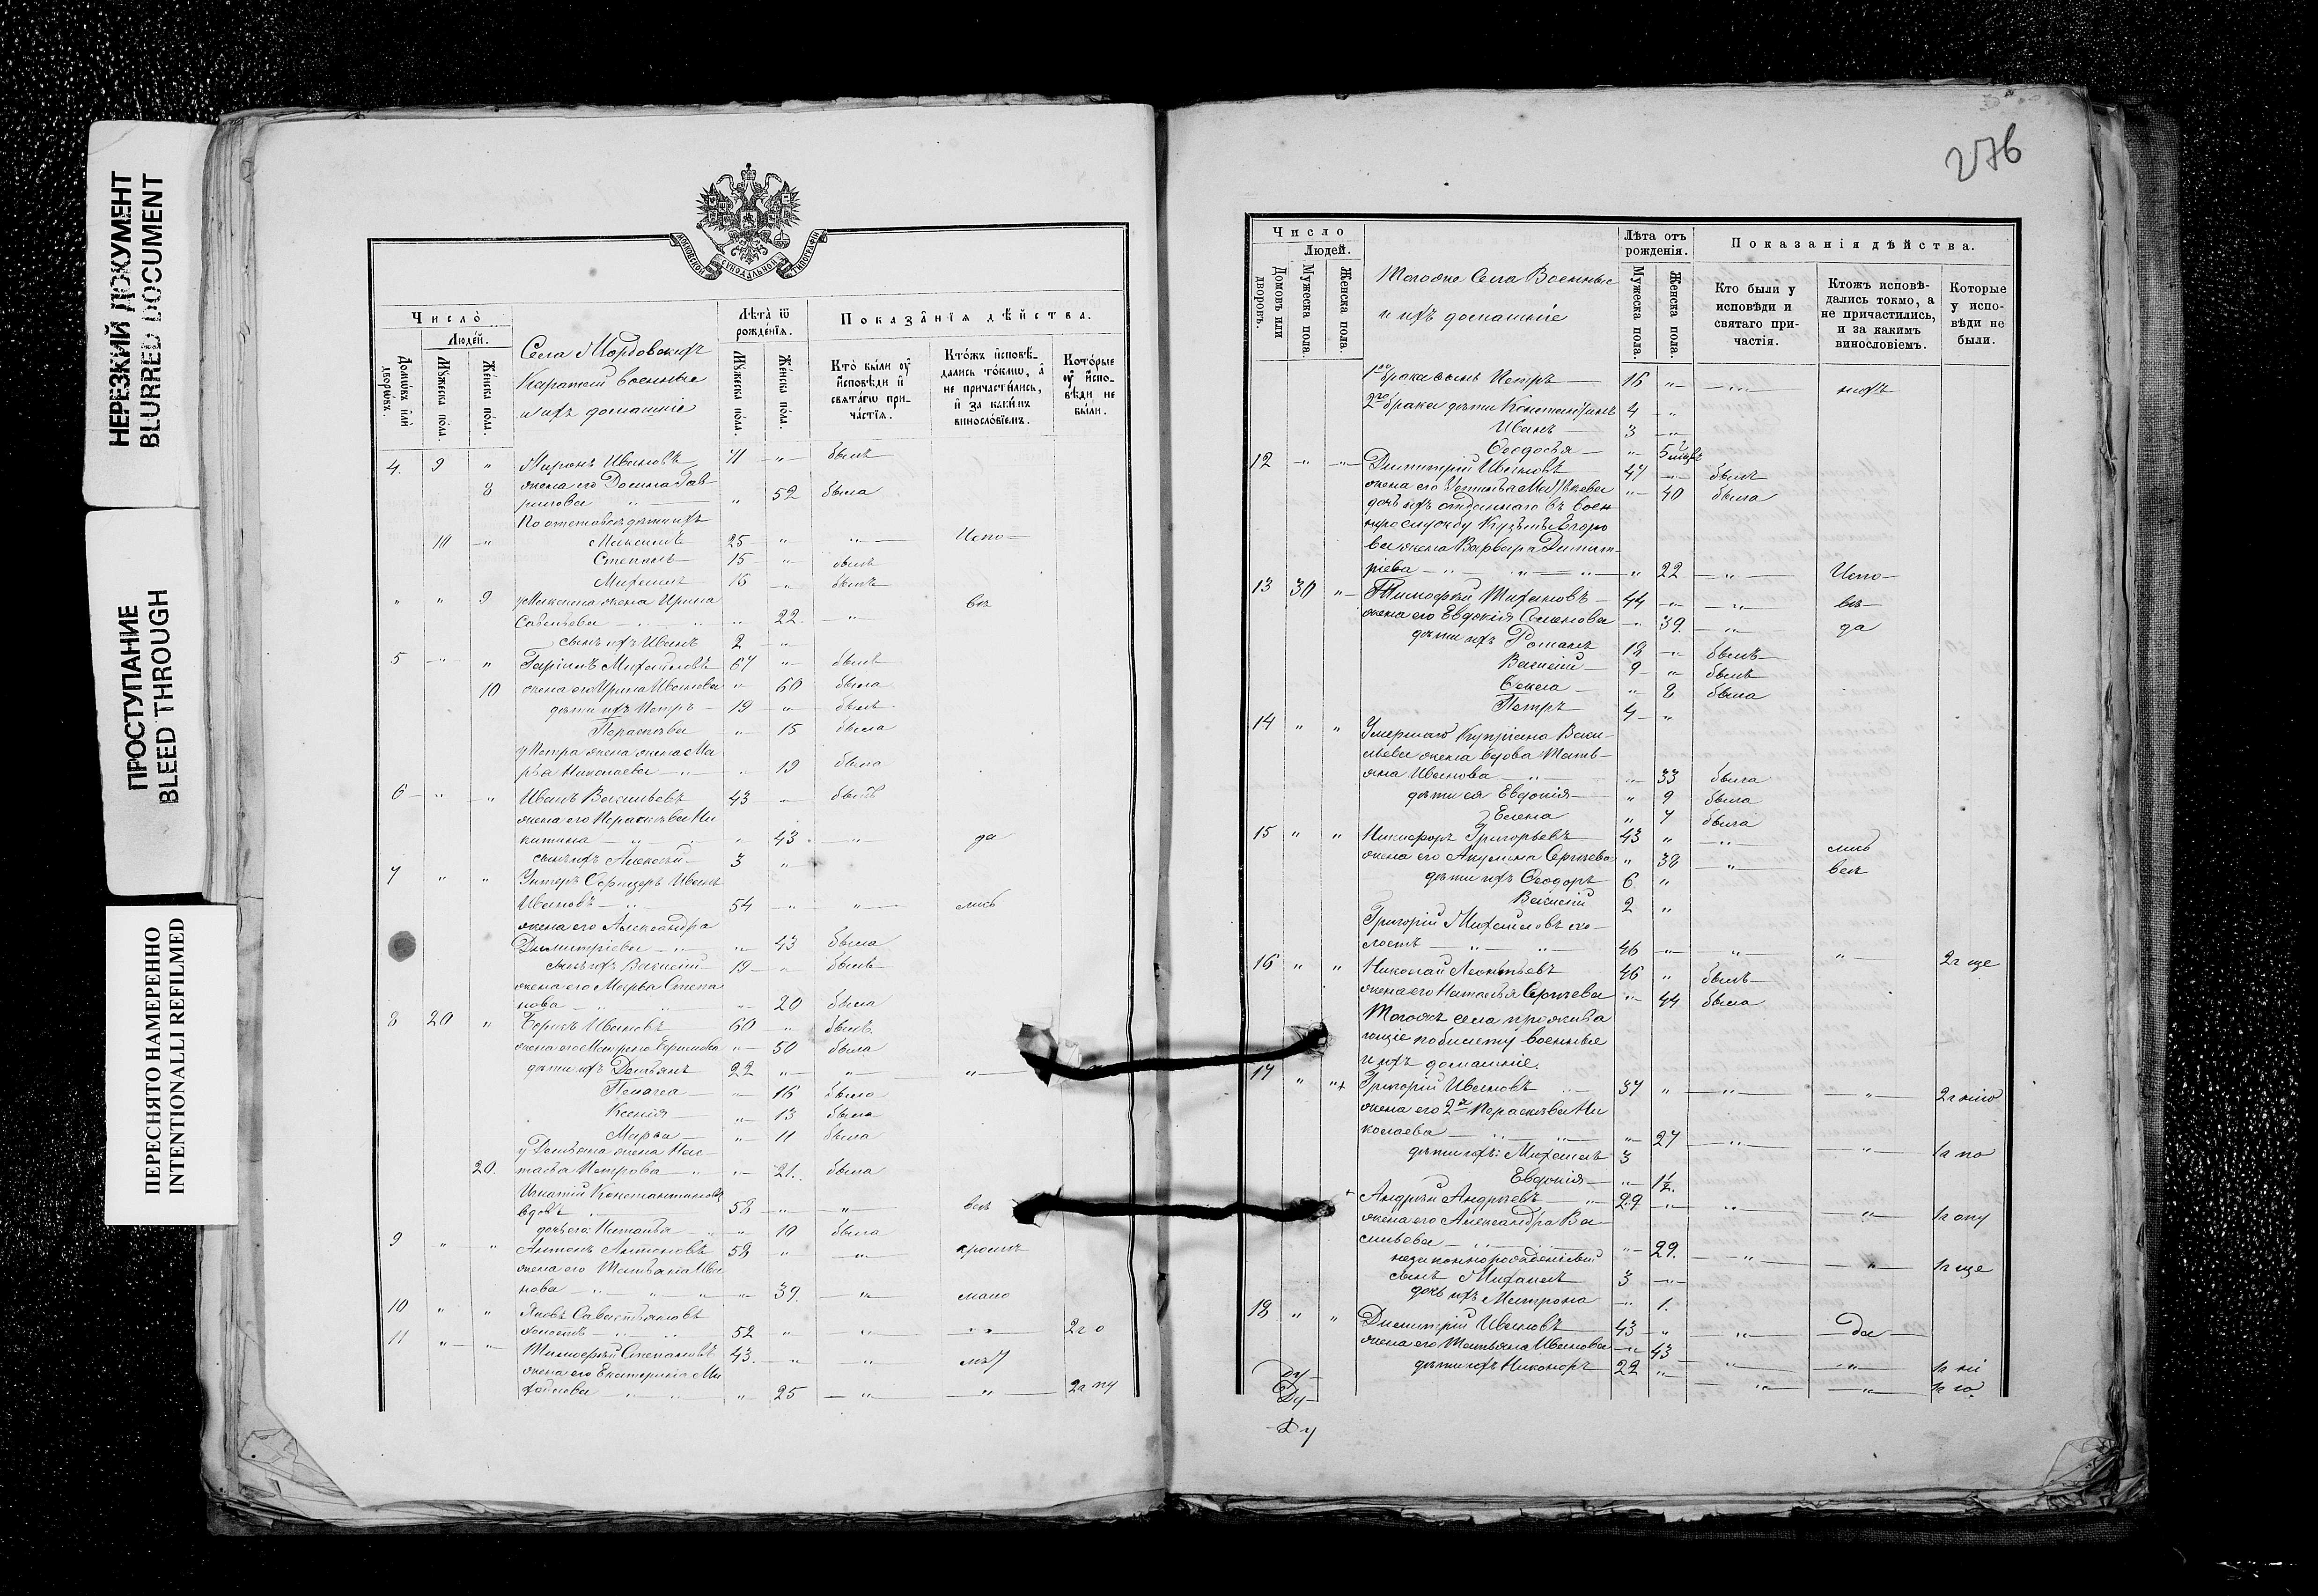 НЕРЕЗКИЙ ДОКУМЕНТ
BLURRED DOCUMENT
ПРОСТУПАНИЕ
BLEED THROUGH
ПЕРЕСНЯТО НАМЕРЕННО
INTENTIONALLI REFILMED
МОСКОВСКОЙ СѴНОДАЛЬНОЙ ТИПОГРАФІИ
Число̀
Людей.
Домѡвъ илѝ дворѡвъ.
Мꙋжеска пола.
Женска пола.
Села Мордовскихъ
Каратай военные
и ихъ домашніе
Лѣта̀ ѿ рожденїѧ.
Мꙋжеска пола.
Женска пола.
Показа̂нїѧ дѣйства.
Кто̀ были ᲂу исповѣди и свѧтагѡ причастїѧ.
Ктожъ исповѣдались токмѡ, а не причастились, и за какимъ винословїемъ.
Которые ᲂу исповѣди не были.
4. 9 " Миронъ Ивановъ 71 " былъ
8 жена его Домна Гав-
рилова " 52 была
По отставкѣ дѣти ихъ
10 " Максимъ 25 " " Испо
Степанъ 15 " былъ
Михаилъ 16 " былъ
" " 9 у Максима жена Ирина
Савельева 22 " вѣ
сынъ ихъ Иванъ 2 "
5 " " Гаріилъ Михайловъ 67 " былъ
10 жена его Ирина Иванова " 60 была
дѣти ихъ Петръ 19 " былъ
Параскева " 15 была
у Петра жена жена Ма
рѳа Николаева " 19 была
6 " " Иванъ Васильевъ 43 " былъ
жена его Параскева Ни
китина " 43 " да
сынъ ихъ Алексѣй 3 "
7 " " Унтеръ Офицеръ Иванъ
Ивановъ 54 " " лись
жена его Александра
Димитріева " 43 была
сынъ ихъ Василій 19 " былъ
жена его Марѳа Степа
нова " 20 была
8 20 " Борисъ Ивановъ 60 " былъ
жена его Матрена " 50 была
дѣти ихъ Демьянъ 22 " " "
Пелагеа " 16 была
Ксенія " 13 была
Марѳа " 11 была
у Демьяна жена Нас-
20. тасья Петрова " 21. была
Игнатій Константиновъ
вдовъ 58 " " вел
дочь его Наталья " 10 была
9 " " Антонъ Антоновъ 58 " " кромѣ
жена его Татьяна Ива
нова " 39. " мало
10 " " Яковъ Савастьяновъ
холостъ 52 " " " 2г о
11 " " Тимофей Степановъ 43. " " лѣт
жена его Екатерина Ми
хайлова " 25 " " 2г пу
276
Число
Людей.
Домовъ или дворовъ.
Мужеска пола.
Женска пола.
Тогожъ Села Военные
и ихъ домашніе
Лѣта отъ рожденія.
Мужеска пола.
Женска пола.
Показанія дѣйства.
Кто были у исповѣди и святаго причастія.
Ктожъ исповѣдались токмо, а не причастились, и за какимъ винословіемъ.
Которые у исповѣди не были.
1го брака сынъ Петръ 16 " " нихъ
2го брака дѣти Константинъ 4 "
Иванъ 3 "
Ѳеодосья " 5 мѣсяц
12 " " Димитрій Ивановъ 47 " былъ
жена его Матѳеева " 40 была
дочь ихъ отданнаго въ воен
ную службу Кузьмы Егоро
ва жена Варвара Димит-
ріева " 22 " Испо
13 30 " Тимофей Михайловъ 44 " " вѣ
жена его Евдокія Семенова " 39. " да
дѣти ихъ Романъ 12 " былъ
Василій 9 " былъ
Ѳекла " 8 была
Петръ 4 "
14 " " Умершаго Купріана Васи-
льева жена вдова Тать-
яна Иванова " 33 была
дѣти ея Евдокія " 9 была
Елена " 7 была
15 " " Никифоръ Григорьевъ 43 " " лись
жена его Акулина Сергѣева " 38 " вел
дѣти ихъ Ѳеодоръ 6 "
Василій 2 "
Григорій Михайловъ хо-
лостъ 46 " " " 2г ще
16 " " Николай Леонтьевъ 46 " былъ
жена его Наталья Сергѣева " 44 была
Тогожъ села прожива
ющіе по билету военные
и ихъ домашніе.
17 " "+ Григорій Ивановъ 37 " " " 2г нію
жена его 2я Параскева Ни
колаева " 27 " " 1г по
дѣти ихъ: Михаилъ 3
Евдокія " 1½.
+ Андрей Андреевъ 29 " " " 1г опу
жена его Александра Ва
сильева " 29. " " 1г ще
незаконнорожденный
сынъ Михаилъ 3 "
дочь ихъ Матрона " 1.
18 " " Димитрій Ивановъ 43 " " да
жена его Татьяна Иванова " 43 " " 1г ні
дѣти ихъ Никоноръ 22 " " " 1г ю.
Ду
Ду
Ду